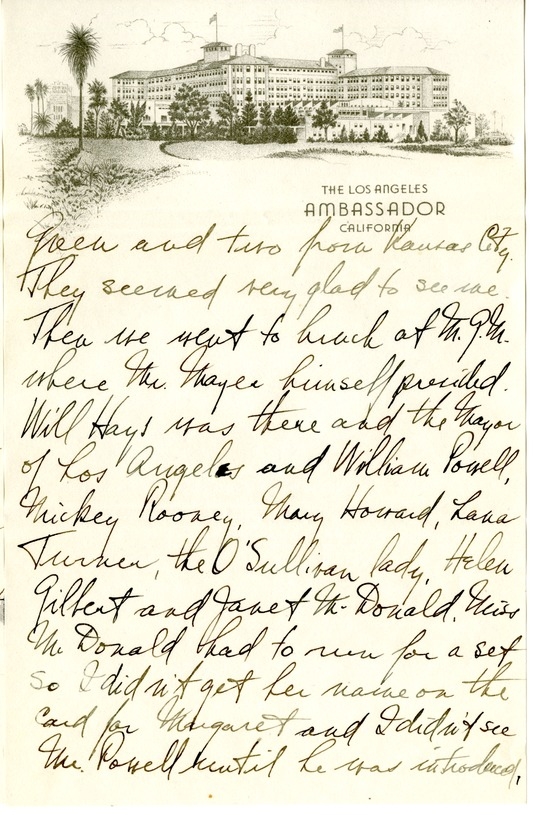 THE LOS ANGELES
AMBASSADOR
CALIFORNIA
Green and two from Kansas City.
They seemed very glad to see me.
Then we went to lunch at M.G.M.
where Mr. Mayer himself presided.
Will Hays was there and the Mayor
of Los Angeles and William Powell,
Mickey Rooney, Mary Howard, Lana
Turner, the O'Sullivan lady, Helen
Gilbert and Janet McDonald. Miss
McDonald had to run for a set
so I didn't get her name on the
card for Margaret and I didn't see
Mr. Powell until he was introduced,